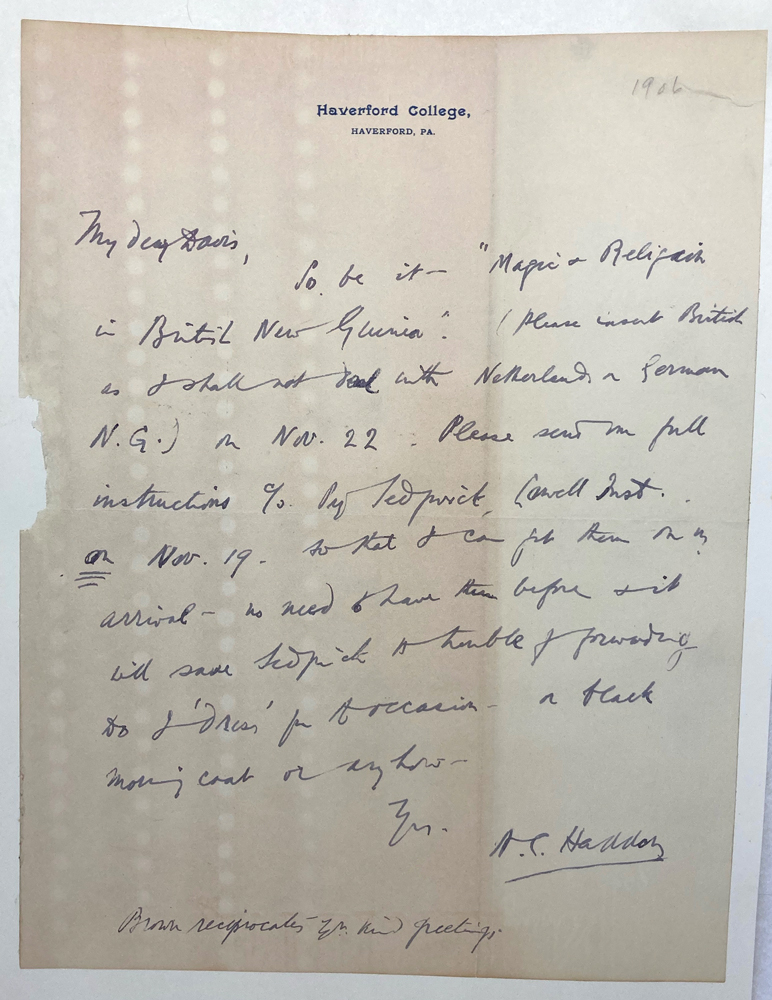 1906
Haverford College,
HAVERFORD, PA.
My dear Davis,
So be it - "Magic & Religion
in British New Guinea". (Please insert British
as I shall not deal with Netherlands or German
N.G.) on Nov. 22. Please send me full
instructions c/o Prof Sedgwick, Lowell Inst.
on Nov. 19. so that I can get them on my
arrival - no need to have them before & it
will save Sedgwick the trouble of forwarding
Do I 'dress' for the occasion - or black
morning coat or anyhow -
Yrs.
A.C. Haddon
Brown reciprocates yr. kind greetings.